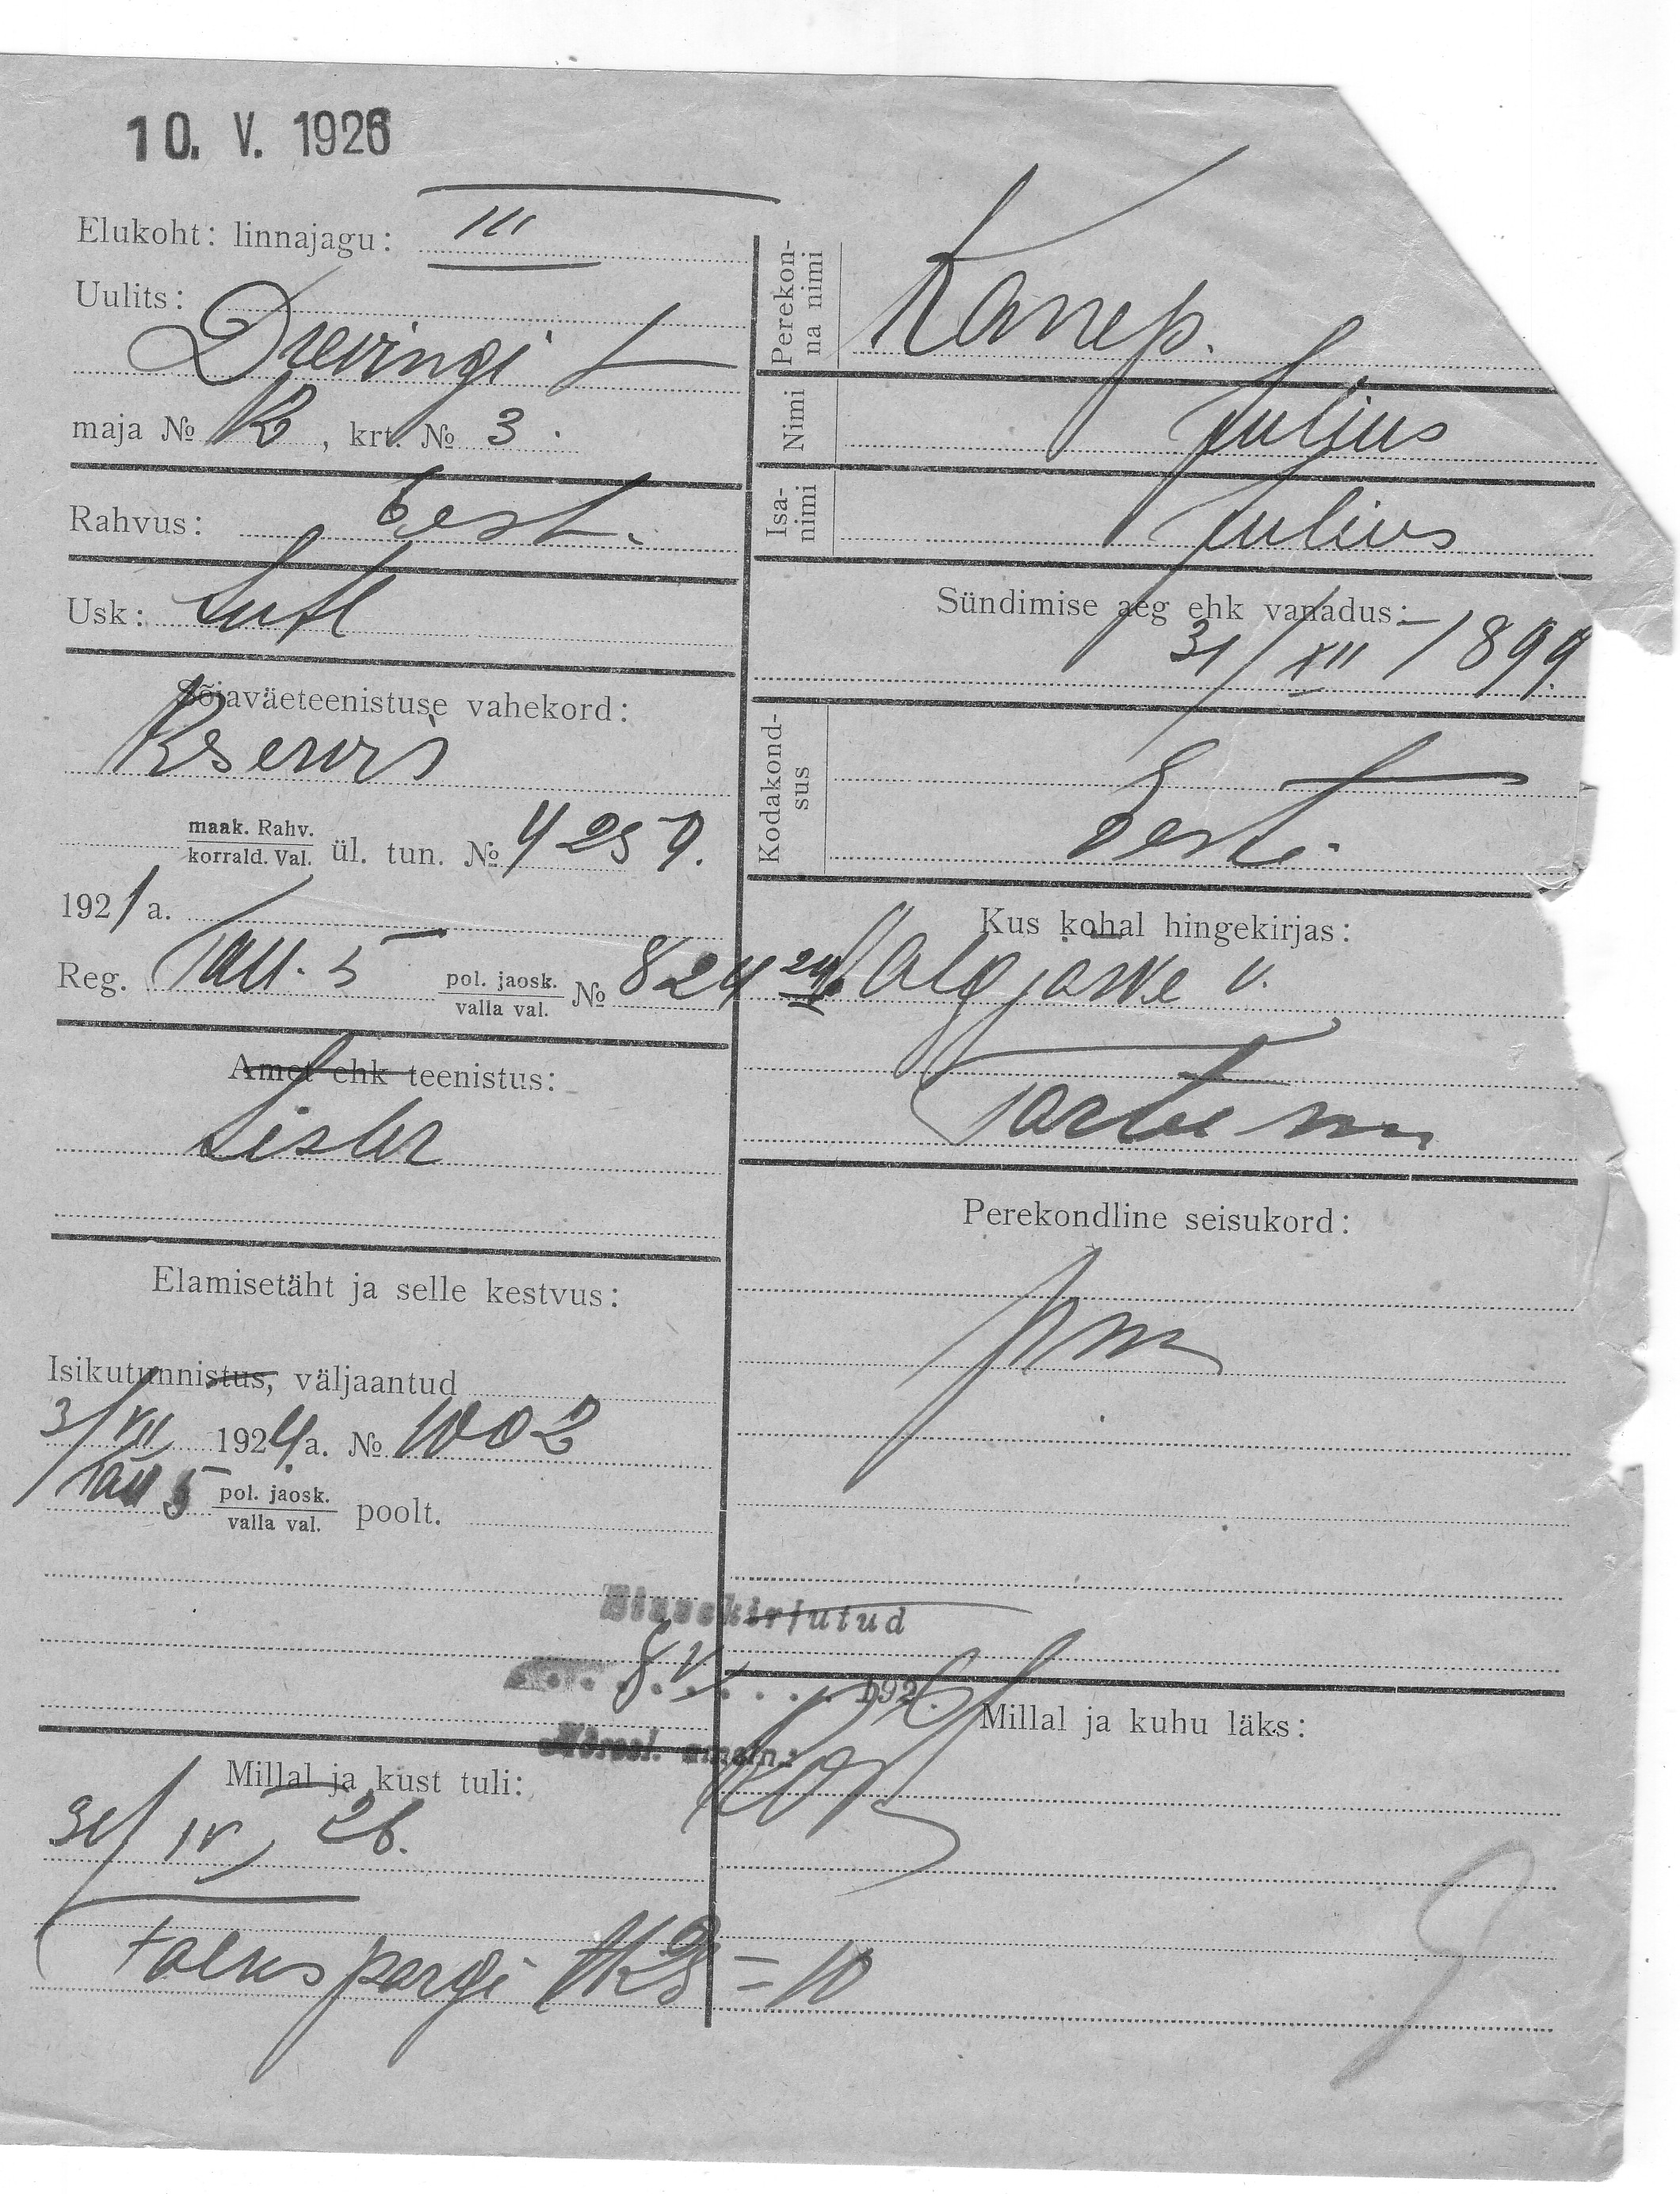 10. V. 1926
Elukoht: linnajagu: III
Uulits:
Drevingi
maja № 12, krt. № 3.
Rahvus: Eest.
Usk: Luth
Sõjaväeteenistuse vahekord:
Reservis
maak. Rahv.
korrald. Val. ül. tun. № 4259.
1921 a.
Reg. Tall. 5 pol. jaosk.
valla val. № 824
Amet ehk teenistus:
Elamisetäht ja selle kestvus:
Isikutunnistus, väljaantud
3/VII 1924 a. № 1002
Tall 5 pol. jaosk.
valla val. poolt.
Millal ja kust tuli:
IV 26.
pargi = 10
Perekon-
na nimi Kanep.
Nimi Juljus
Isa-
nimi Julius
Sündimise aeg ehk vanadus:
31/XII 1899.
Kodakond-
sus Eesti.
Kus kohal hingekirjas:
24 Algjärve v.
Tartu m
Perekondline seisukord:
Sissekirjutud
8 V 1926
Millal ja kuhu läks: